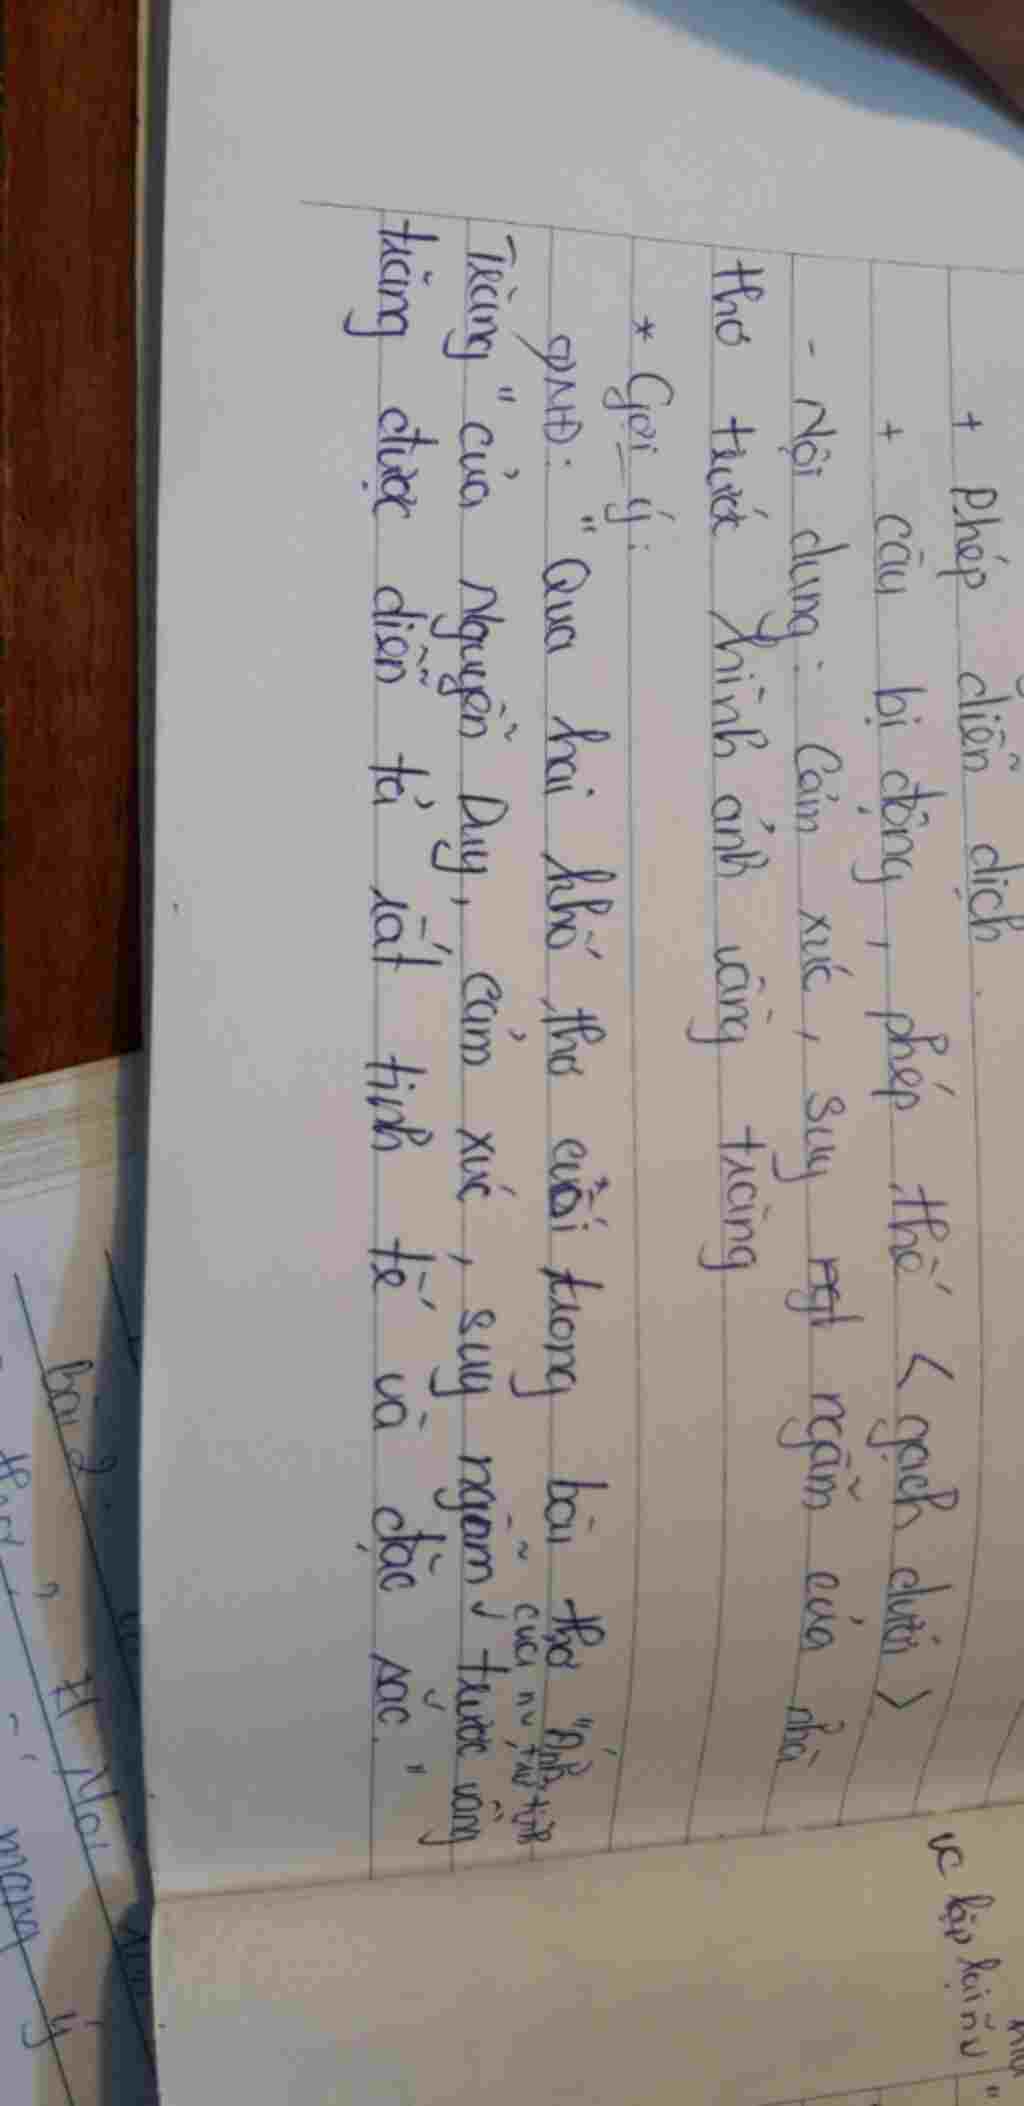 + Phép diễn dịch.
+ câu bị động, phép thế < gạch dưới >
- Nội dung: Cảm xúc, suy ngẫm của nhà
thơ trước hình ảnh vầng trăng
* Gợi ý:
"Qua hai khổ thơ cuối trong bài thơ "Ánh
của nv trữ tình
Trăng" của Nguyễn Duy, cảm xúc, suy ngẫm trước vầng
trăng được diễn tả rất tinh tế và đặc sắc."
vc lặp lại
bài 2